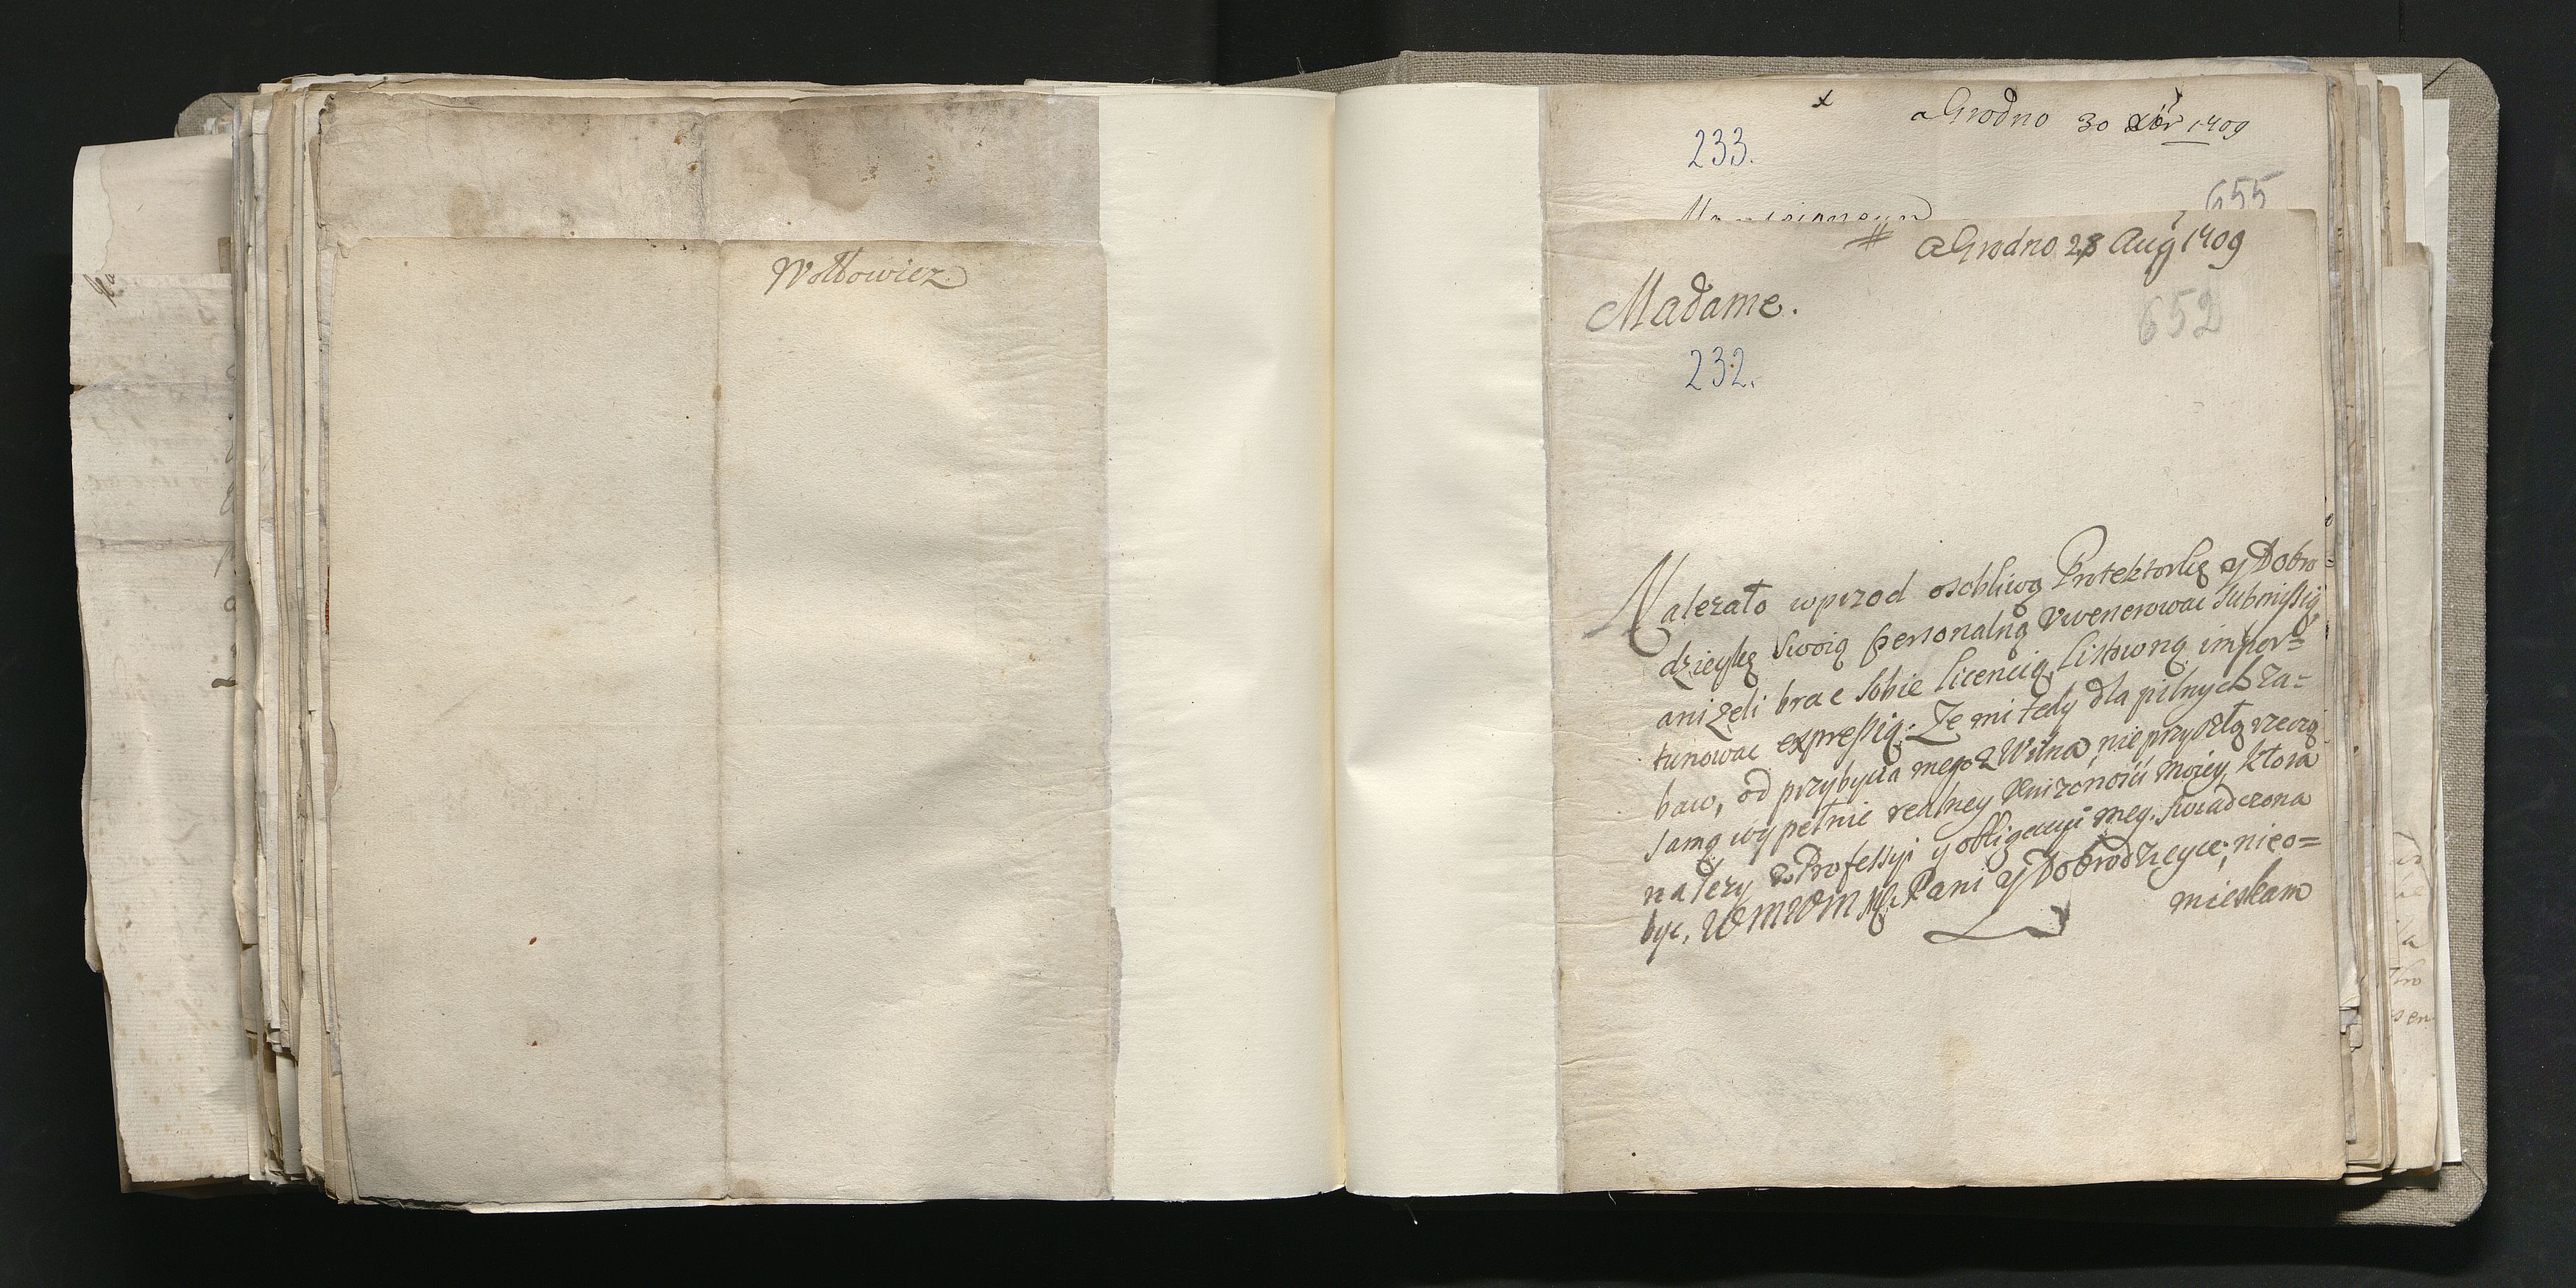 Wołłowicz
a Grodno 30 Xbr 1709
233.
655
Monseigneur
a Grodno 28 Aug 1709
Madame.
652
232.
Nalezało wprzod osobliwą Protektorkę y Dobro=
dzieykę Swoią personalną Vwenerowac Submissią
aniżeli brac sobie licencią, listowną impor=
tunowac expressią. Ze mi tedy dla pilnych za=
baw, od przybycia mego z Wilna, nie przyszło rzeczą
samą wypełnic realney Vnizonosci moiey, ktora
nalezy z Professyi y obligacyi mey swiadczona
byc, WMWM Mę Pani y Dobrodzieyce; nieo=
mieskam